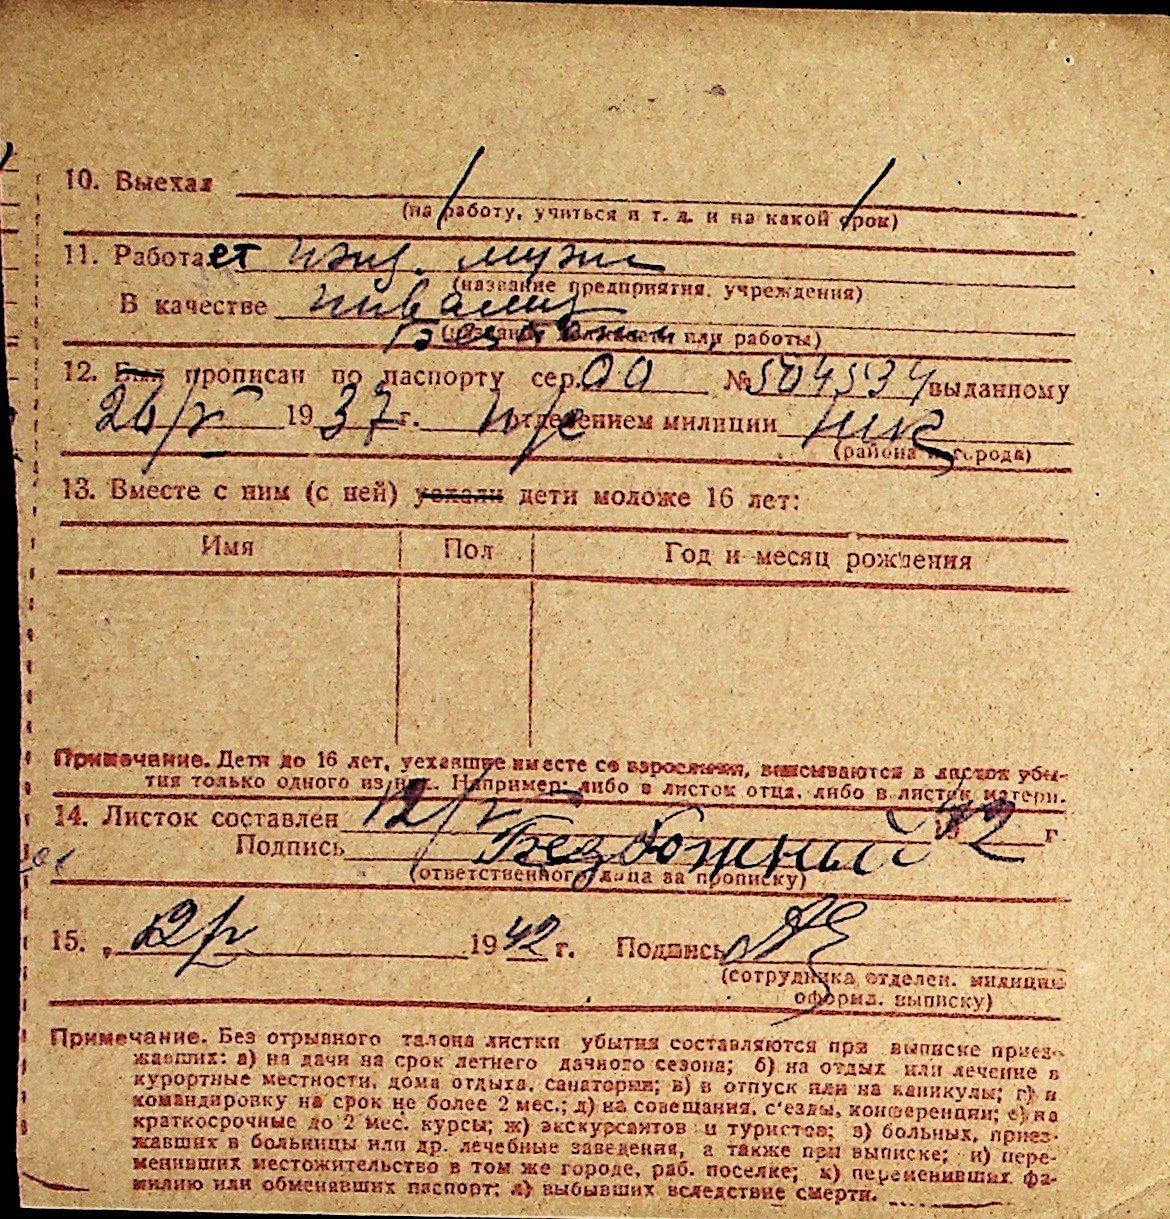 10. Выехал
(на работу, учиться и т. д. и на какой срок)
11. Работает ижд. мужа
(название предприятия, учреждения)
В качестве инвалид
(название должности или работы)
12. Был прописан по паспорту сер. № 504534 выданному
26/V 1937 г. отделением милиции
(района и города)
13. Вместе с ним (с ней) уехали дети моложе 16 лет:
Имя Пол Год и месяц рождения
Примечание. Дети до 16 лет, уехавшие вместе со взрослыми, вписываются в листок убы-
тия только одного из них. Например: либо в листок отца, либо в листок матери.
14. Листок составлен 12/V 1942 г
Подпись Безбожный
(ответственного лица за прописку)
15. „ 1942 г. Подпись
(сотрудника отделен. милиции
оформл. выписку)
Примечание. Без отрывного талона листки убытия составляются при выписке приез-
жавших: а) на дачи на срок летнего дачного сезона; б) на отдых или лечение в
курортные местности, дома отдыха, санатории; в) в отпуск или на каникулы; г) в
командировку на срок не более 2 мес.; д) на совещания, с'езды, конференции; е) на
краткосрочные до 2 мес. курсы; ж) экскурсантов и туристов; з) больных, приез-
жавших в больницы или др. лечебные заведения, а также при выписке; и) пере-
менивших местожительство в том же городе, раб. поселке; к) переменивших фа-
милию или обменявших паспорт; л) выбывших вследствие смерти.